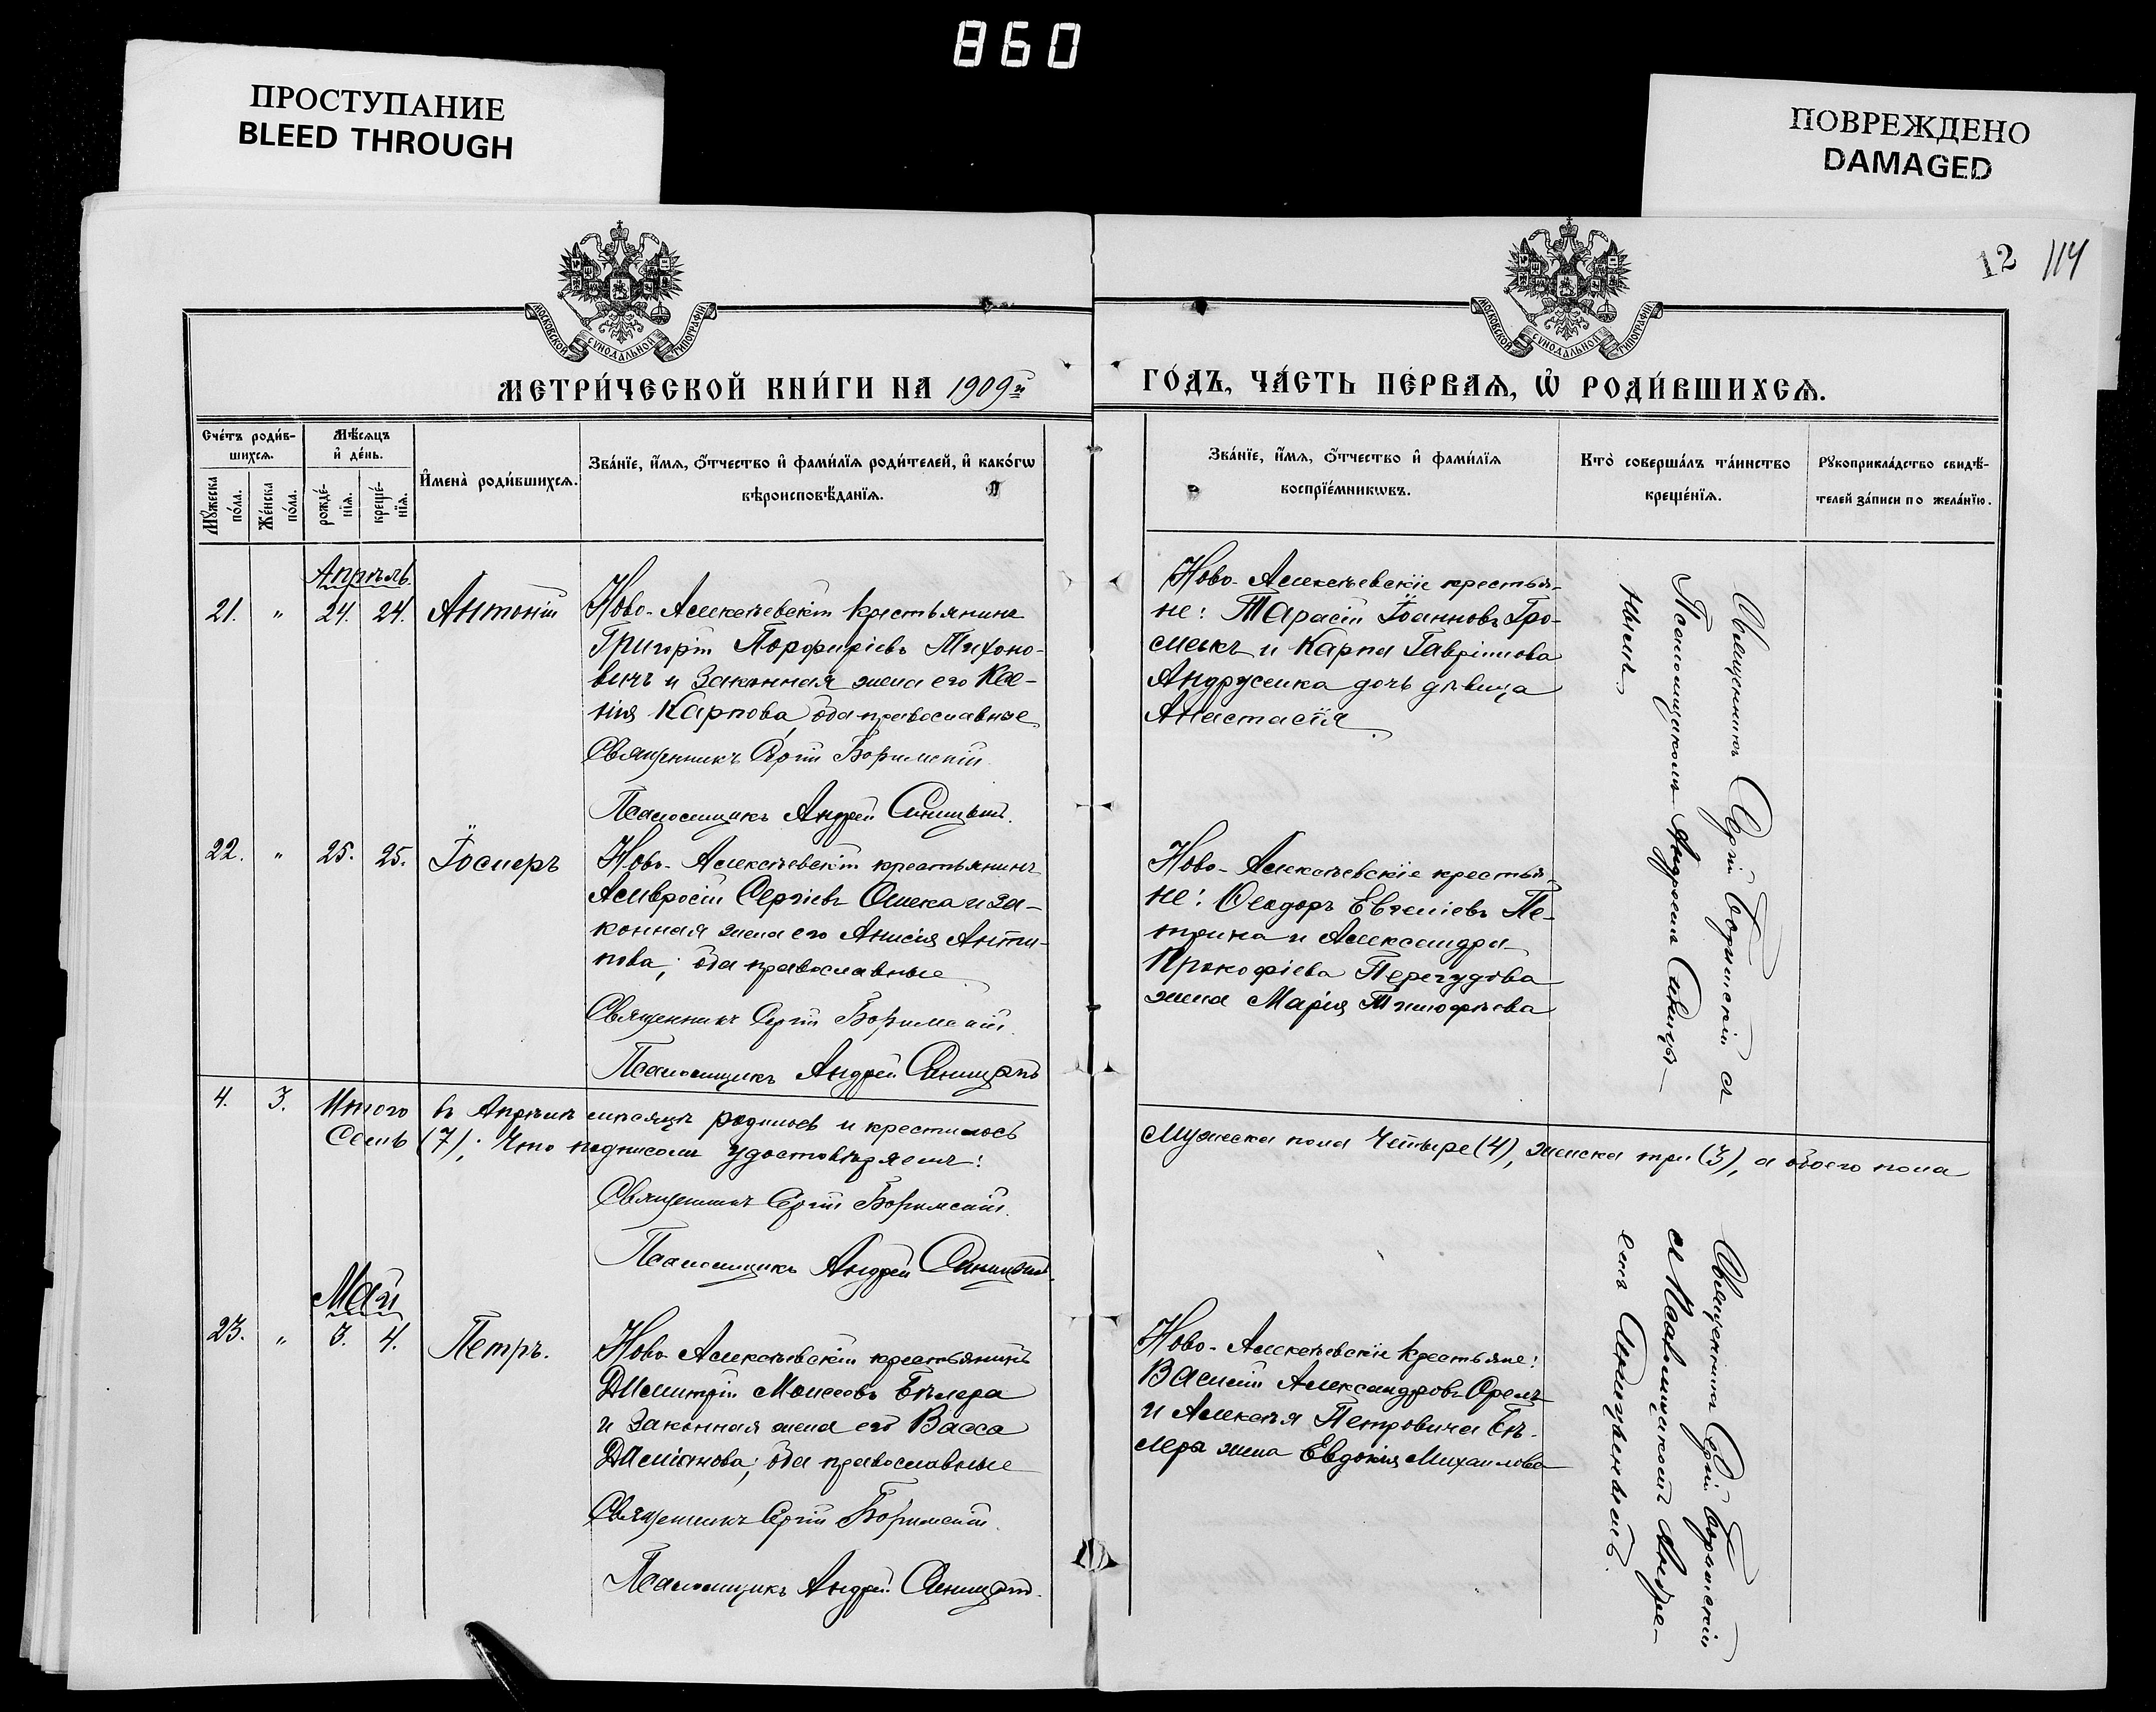 860
ПРОСТУПАНИЕ
BLEED THROUGH
ПОВРЕЖДЕНО
DAMAGED
12 114
МОСКОВСКОЙ СѴНОДАЛЬНОЙ ТИПОГРАФІИ
МОСКОВСКОЙ СѴНОДАЛЬНОЙ ТИПОГРАФІИ
МЕТРИ́ЧЕСКОЙ КНИ́ГИ НА 1909й
ГО́ДЪ, ЧА́СТЬ ПЕ́РВАѦ, Ѡ РОДИ́ВШИХСѦ.
Сче́тъ роди́в-
шихсѧ.
Мꙋ́жеска
по́ла.
Же́нска
по́ла.
Мѣ́сѧцъ
и҆ де́нь.
рожде́-
нїѧ.
креще́-
нїѧ.
И҆мена̀ роди́вшихсѧ.
Зва́нїе, и҆́мѧ, ѻ҆́тчество и҆ фами́лїѧ роди́телей, и҆ како́гѡ
вѣроисповѣ́данїѧ.
Зва́нїе, и҆́мѧ, ѻ҆́тчество и҆ фами́лїѧ
воспрїе́мникѡвъ.
Кто̀ соверша́лъ та́инство
креще́нїѧ.
Рꙋкоприкла́дство свидѣ́-
телей за́писи по жела́нїю.
Апрѣль
21. " 24. 24. Антоній
Ново-Алексѣевскій крестьянинъ
Григорій Порфиріевъ Тихоно-
вичъ и законная жена его Ксе-
нія Карпова, оба православные
Священникъ Сергій Боримскій
Псаломщикъ Андрей Синицынъ.
Ново-Алексѣевскіе крестья-
не: Тарасій Іоанновъ Гро-
смыкъ и Карпа Гавріилова
Андрусенка дочь дѣвица
Анастасія
Священникъ Сергій Боримскій съ
Псаломщикомъ Андреемъ Синицы-
нымъ.
22. " 25. 25. Іосифъ
Ново-Алексѣевскій крестьянинъ
Амвросій Сергіевъ Ошека и за-
конная жена его Анисія Анти-
пова; оба православные
Священникъ Сергій Боримскій.
Псаломщикъ Андрей Синицынъ
Ново-Алексѣевскіе крестья-
не: Ѳеодоръ Евгеніевъ Пе-
трина и Александра
Прокофіева Перегудова
жена Марія Тимофѣева
4. 3. Итого въ Апрѣлѣ мѣсяцѣ родилось и крестилось
мужеска пола четыре (4), женска три (3), а обоего пола
семь (7); что подписомъ удостовѣряемъ:
Священникъ Сергій Боримскій.
Псаломщикъ Андрей Синицынъ.
Май
23. " 3. 4. Петръ.
Ново-Алексѣевскій крестьянинъ
Димитрій Моисеевъ Бѣлера
и законная жена его Васса
Даміанова; оба православные
Священникъ Сергій Боримскій.
Псаломщикъ Андрей Синицынъ.
Ново-Алексѣевскіе крестьяне:
Василій Александровъ Орелъ
и Алексѣя Петровича Бѣ-
лера жена Евдокія Михаилова
Священникъ Сергій Боримскій
съ Псаломщикомъ Андре-
емъ Синицынымъ.